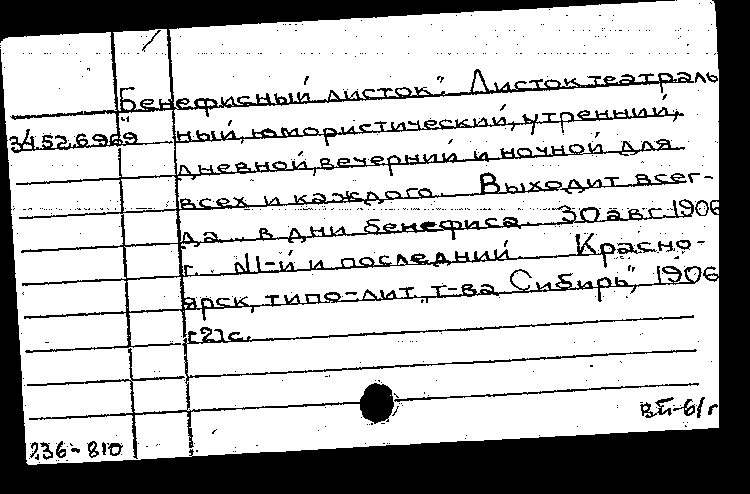 „Бенефисный листок". Листок театраль
34.52.6969 ный, юмористический, утренний,
дневной, вечерний и ночной для
всех и каждого. Выходит всег-
да... в дни бенефиса. 30 авг. 1906
г. №1-й и последний. Красно-
ярск, типо-лит. „т-ва Сибирь", 1906
[2] с.
236-810